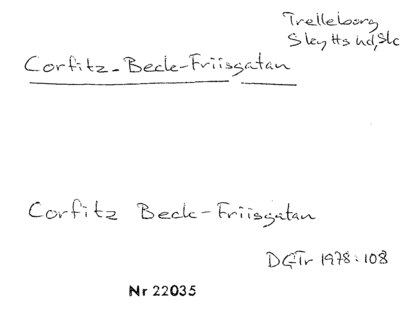 Trelleborg
Skytts hd, Sk
Corfitz-Beck-Friisgatan
Corfitz Beck-Friisgatan
DGTr 1978:108
Nr 22035